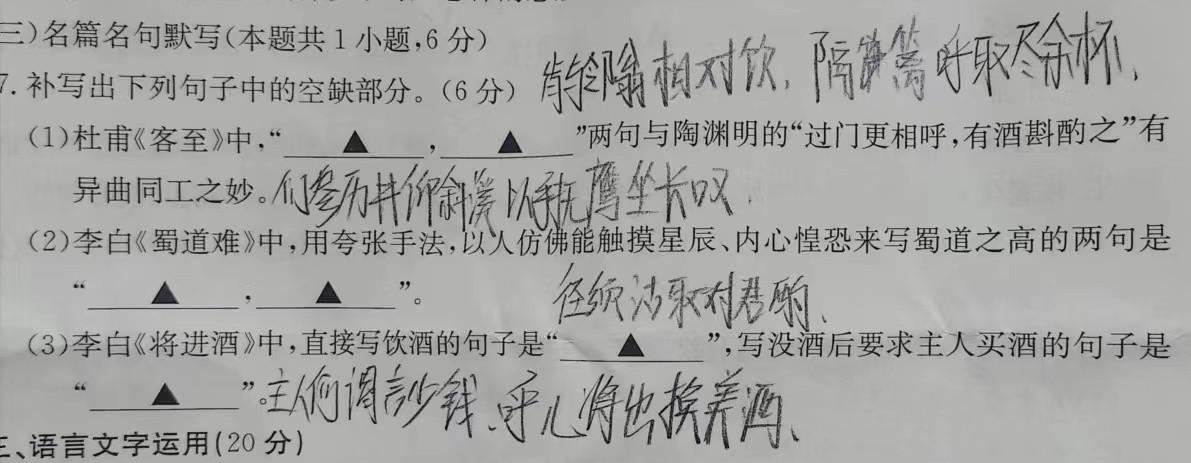 三)名篇名句默写(本题共1小题,6分)
7.补写出下列句子中的空缺部分。(6分) 肯与邻翁相对饮,隔篱呼取尽余杯,
(1)杜甫《客至》中,“ ▲ , ▲ ”两句与陶渊明的“过门更相呼,有酒斟酌之”有
异曲同工之妙。扪参历井仰 以手抚膺坐长叹,
(2)李白《蜀道难》中,用夸张手法,以人仿佛能触摸星辰、内心惶恐来写蜀道之高的两句是
“ ▲ , ▲ ”。 径须沽取对君酌、
(3)李白《将进酒》中,直接写饮酒的句子是“ ▲ ”,写没酒后要求主人买酒的句子是
“ ▲ ”。主人何谓言少钱、呼儿将出换美酒、
三、语言文字运用(20分)